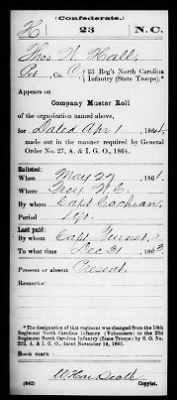 (Confederate.)
H 23 N.C.
Thos W. Hall
Pvt, Co. C, 23 Reg't North Carolina
Infantry (State Troops).*
Appears on
Company Muster Roll
of the organization named above,
for Dated Apr 1, 1864,
made out in the manner required by General
Order No. 27, A. & I. G. O., 1864.
Enlisted:
When May 27, 1861.
Where Troy N.C.
By whom Capt Cochran
Period 1 yr.
Last paid:
By whom Capt Turner
To what time Dec 31, 1863.
Present or absent Present.
Remarks:
* The designation of this regiment was changed from the 13th
Regiment North Carolina Infantry (Volunteers) to the 23d
Regiment North Carolina Infantry (State Troops) by S. O. No.
222, A. & I. G. O., dated November 14, 1861.
Book mark:
(642) Copyist.